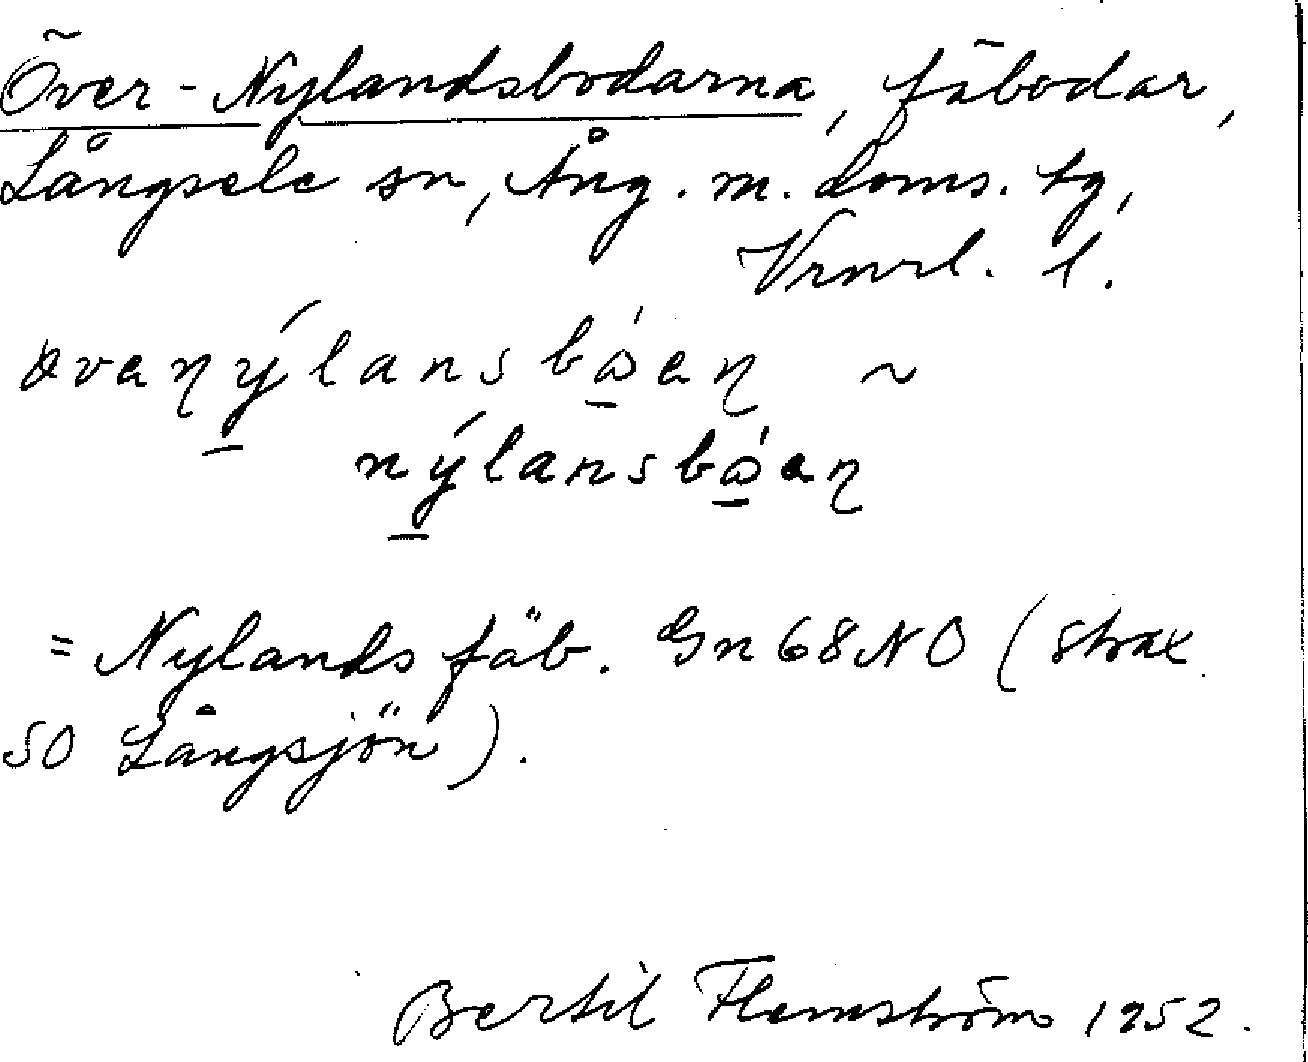 Över-Nylandsbodarna, fäbodar,
Långsele sn, Ång. m. doms. tg,
Vrnrl. l.
nýlansbåen
= Nylands fäb. Gn 68 NO (strax
SO Långsjön).
Bertil Flemström 1952.